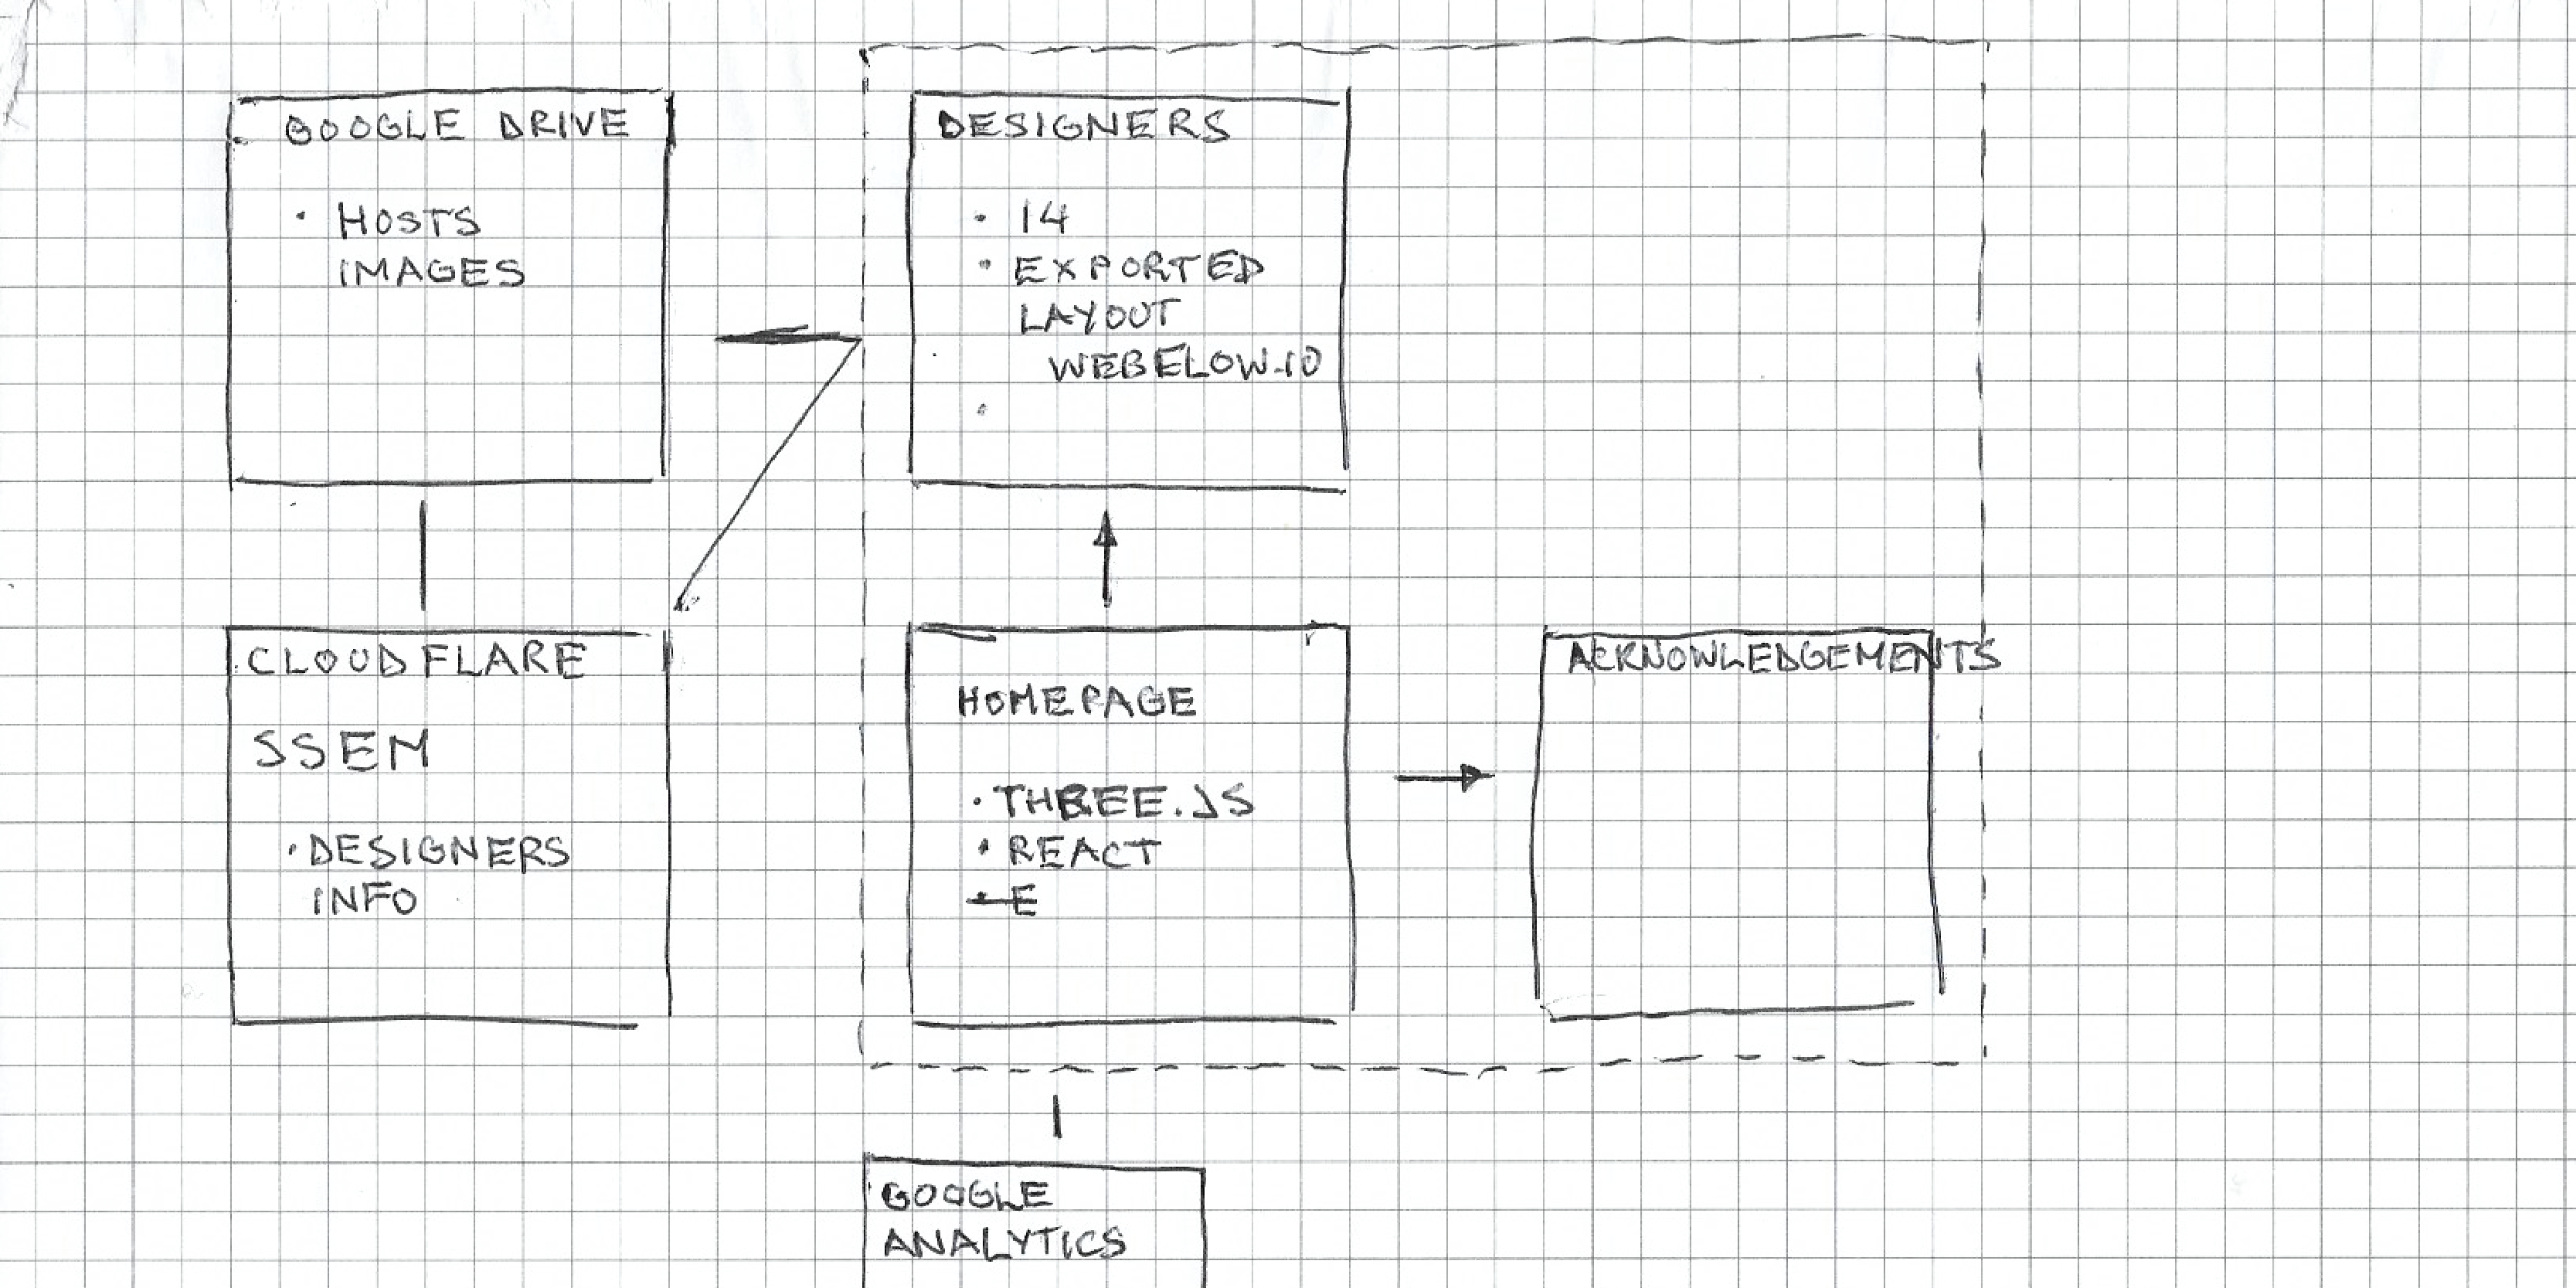 GOOGLE DRIVE
· HOSTS
IMAGES
DESIGNERS
· 14
· EXPORTED
LAYOUT
WEBELOW.IO
·
CLOUDFLARE
SSEM
· DESIGNERS
INFO
HOMEPAGE
· THREE.JS
· REACT
· E
ACKNOWLEDGEMENTS
GOOGLE
ANALYTICS